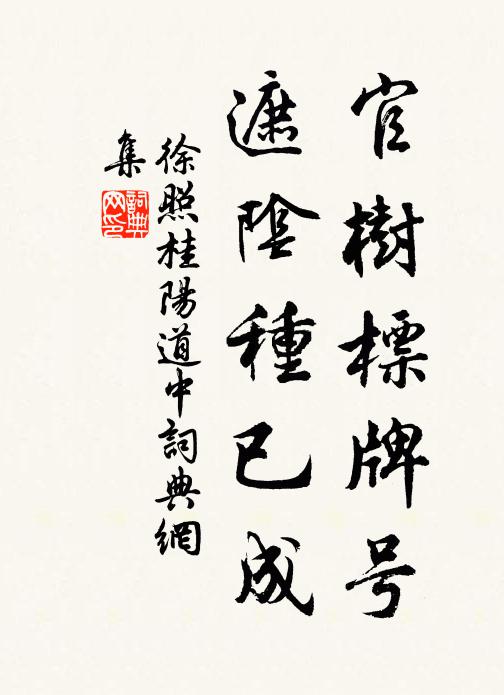 官樹標牌号
遮陰種已成
徐照桂陽道中詞典網
集
詞典
网印